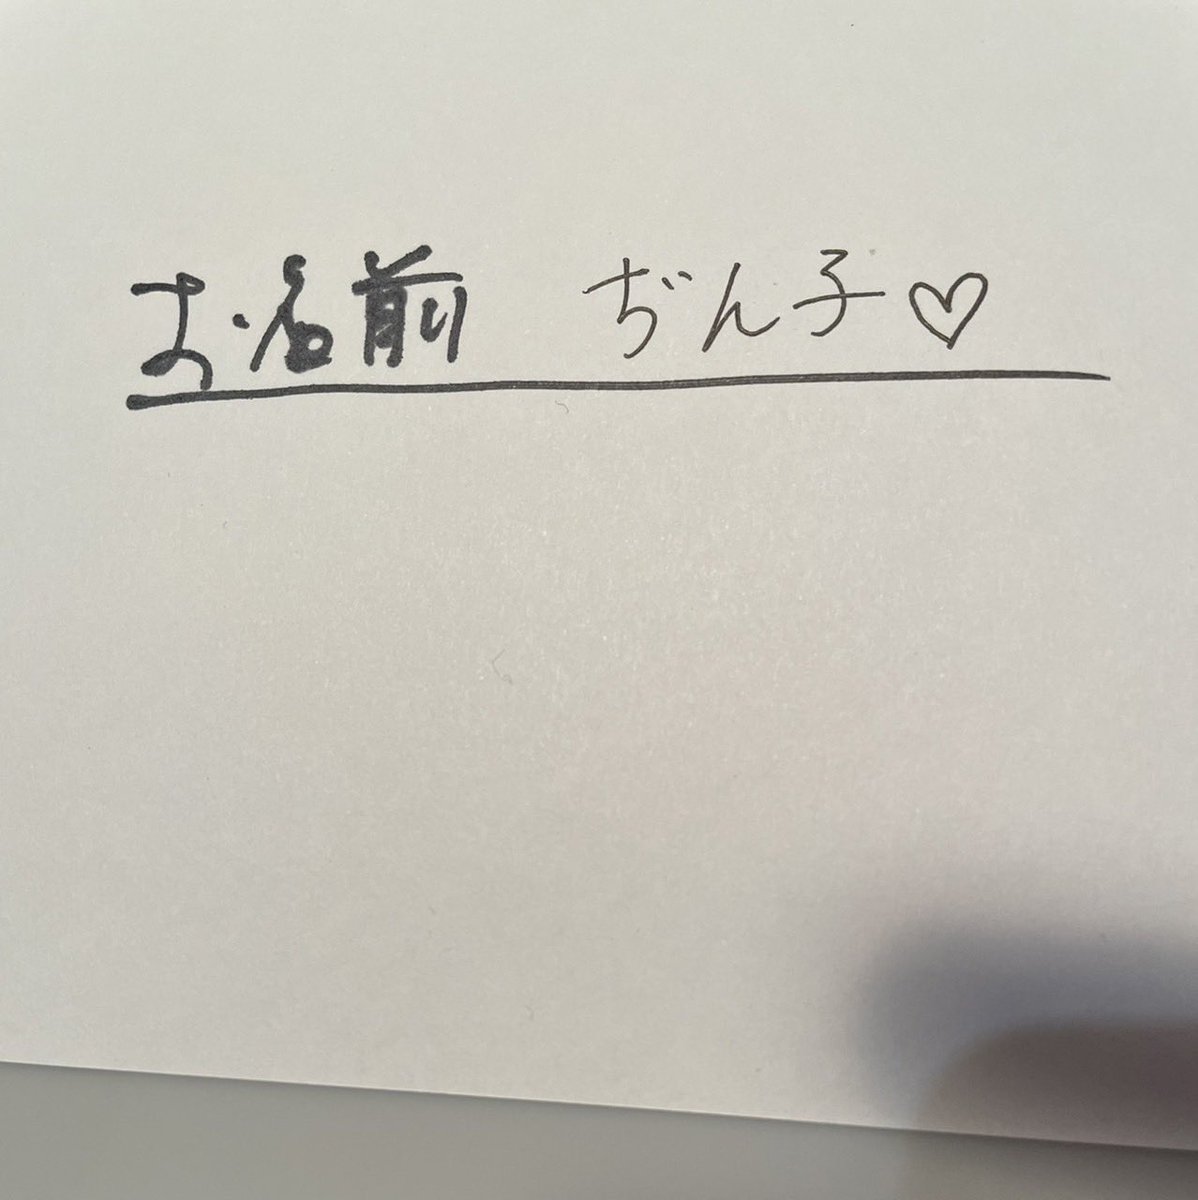 お名前 ぢん子♡